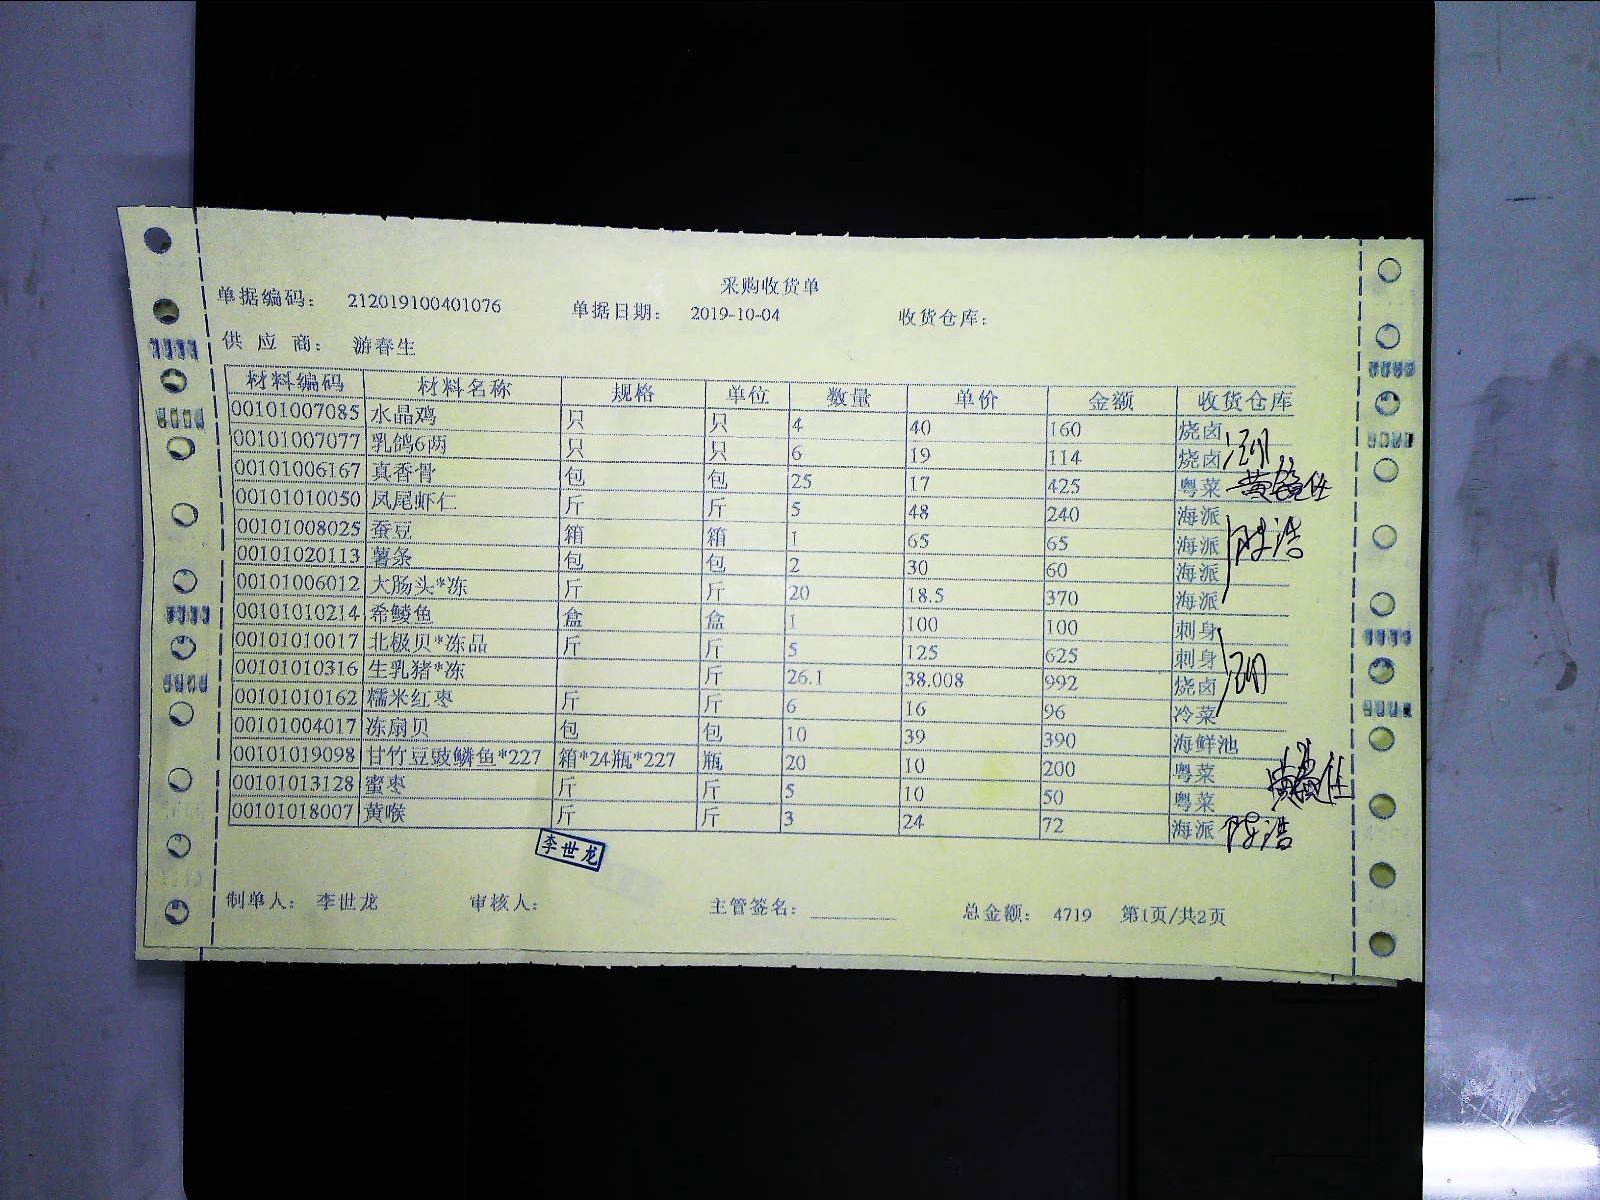 采购收货单
单据编码： 212019100401076 单据日期： 2019-10-04 收货仓库：
供 应 商： 游春生
材料编码 材料名称 规格 单位 数量 单价 金额 收货仓库
00101007085 水晶鸡 只 只 4 40 160 烧卤
00101007077 乳鸽6两 只 只 6 19 114 烧卤
00101006167 真香骨 包 包 25 17 425 粤菜
00101010050 凤尾虾仁 斤 斤 5 48 240 海派
00101008025 蚕豆 箱 箱 1 65 65 海派 陈浩
00101020113 薯条 包 包 2 30 60 海派
00101006012 大肠头*冻 斤 斤 20 18.5 370 海派
00101010214 希鲮鱼 盒 盒 1 100 100 刺身
00101010017 北极贝*冻品 斤 斤 5 125 625 刺身
00101010316 生乳猪*冻 斤 26.1 38.008 992 烧卤
00101010162 糯米红枣 斤 斤 6 16 96 冷菜
00101004017 冻扇贝 包 包 10 39 390 海鲜池
00101019098 甘竹豆豉鳞鱼*227 箱*24瓶*227 瓶 20 10 200 粤菜
00101013128 蜜枣 斤 斤 5 10 50 粤菜
00101018007 黄喉 斤 斤 3 24 72 海派 陈浩
李世龙
制单人： 李世龙 审核人： 主管签名： 总金额： 4719 第1页/共2页